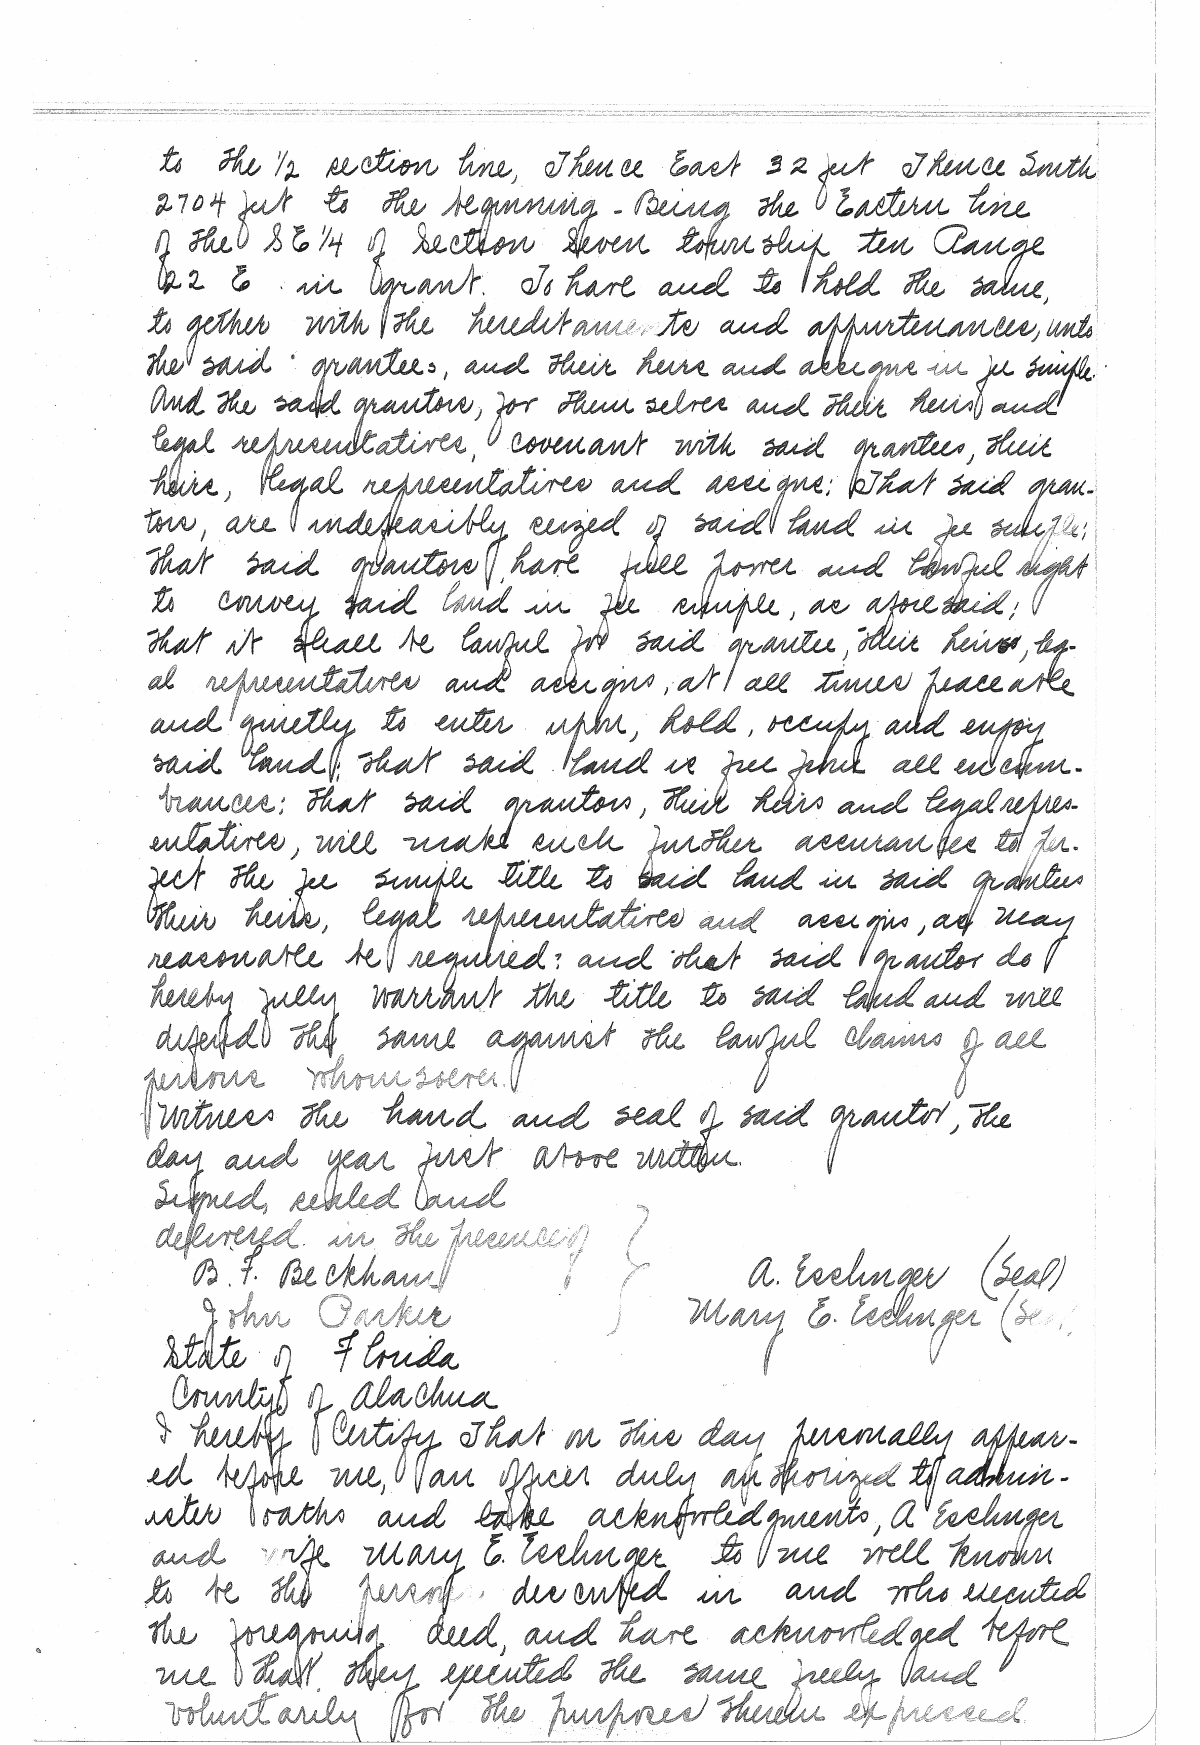 to the 1/2 section line, Thence East 32 feet Thence South
2704 feet to the beginning - Being the Eastern line
of the SE 1/4 of Section Seven township ten Range
22 E in grant. To have and to hold the same,
to gether with the hereditaments and appurtenances, unto
the said grantees, and their heirs and assigns in fee simple.
And the said grantors, for them selves and their heirs and
legal representatives, covenant with said grantees, their
heirs, legal representatives and assigns: That said gran-
tors, are indefeasibly seized of said land in fee simple;
that said grantors have full power and lawful right
to convey said land in fee simple, as afore said;
that it shall be lawful for said grantee, their heirs, leg-
al representatives and assigns, at all times peaceable
and quietly to enter upon, hold, occupy and enjoy
said land; that said land is free from all encum-
brances: that said grantors, their heirs and legal repres-
entatives, will make such further assurances to per-
fect the fee simple title to said land in said grantees
their heirs, legal representatives and assigns, as may
reasonable be required: and that said grantor do
hereby fully warrant the title to said land and will
defend the same against the lawful claims of all
persons whomsoever.
Witness the hand and seal of said grantor, the
day and year first above written.
Signed, sealed and
delivered in the presence of }
B. F. Beckham A. Esslinger (Seal)
John Parker Mary E. Esslinger (Seal)
State of Florida
County of Alachua
I hereby Certify That on this day personally appear-
ed before me, an officer duly authorized to admin-
ister oaths and take acknowledgments, A Esslinger
and wife Mary E. Esslinger to me well known
to be the person described in and who executed
the foregoing deed, and have acknowledged before
me that they executed the same freely and
voluntarily for the purposes therein expressed